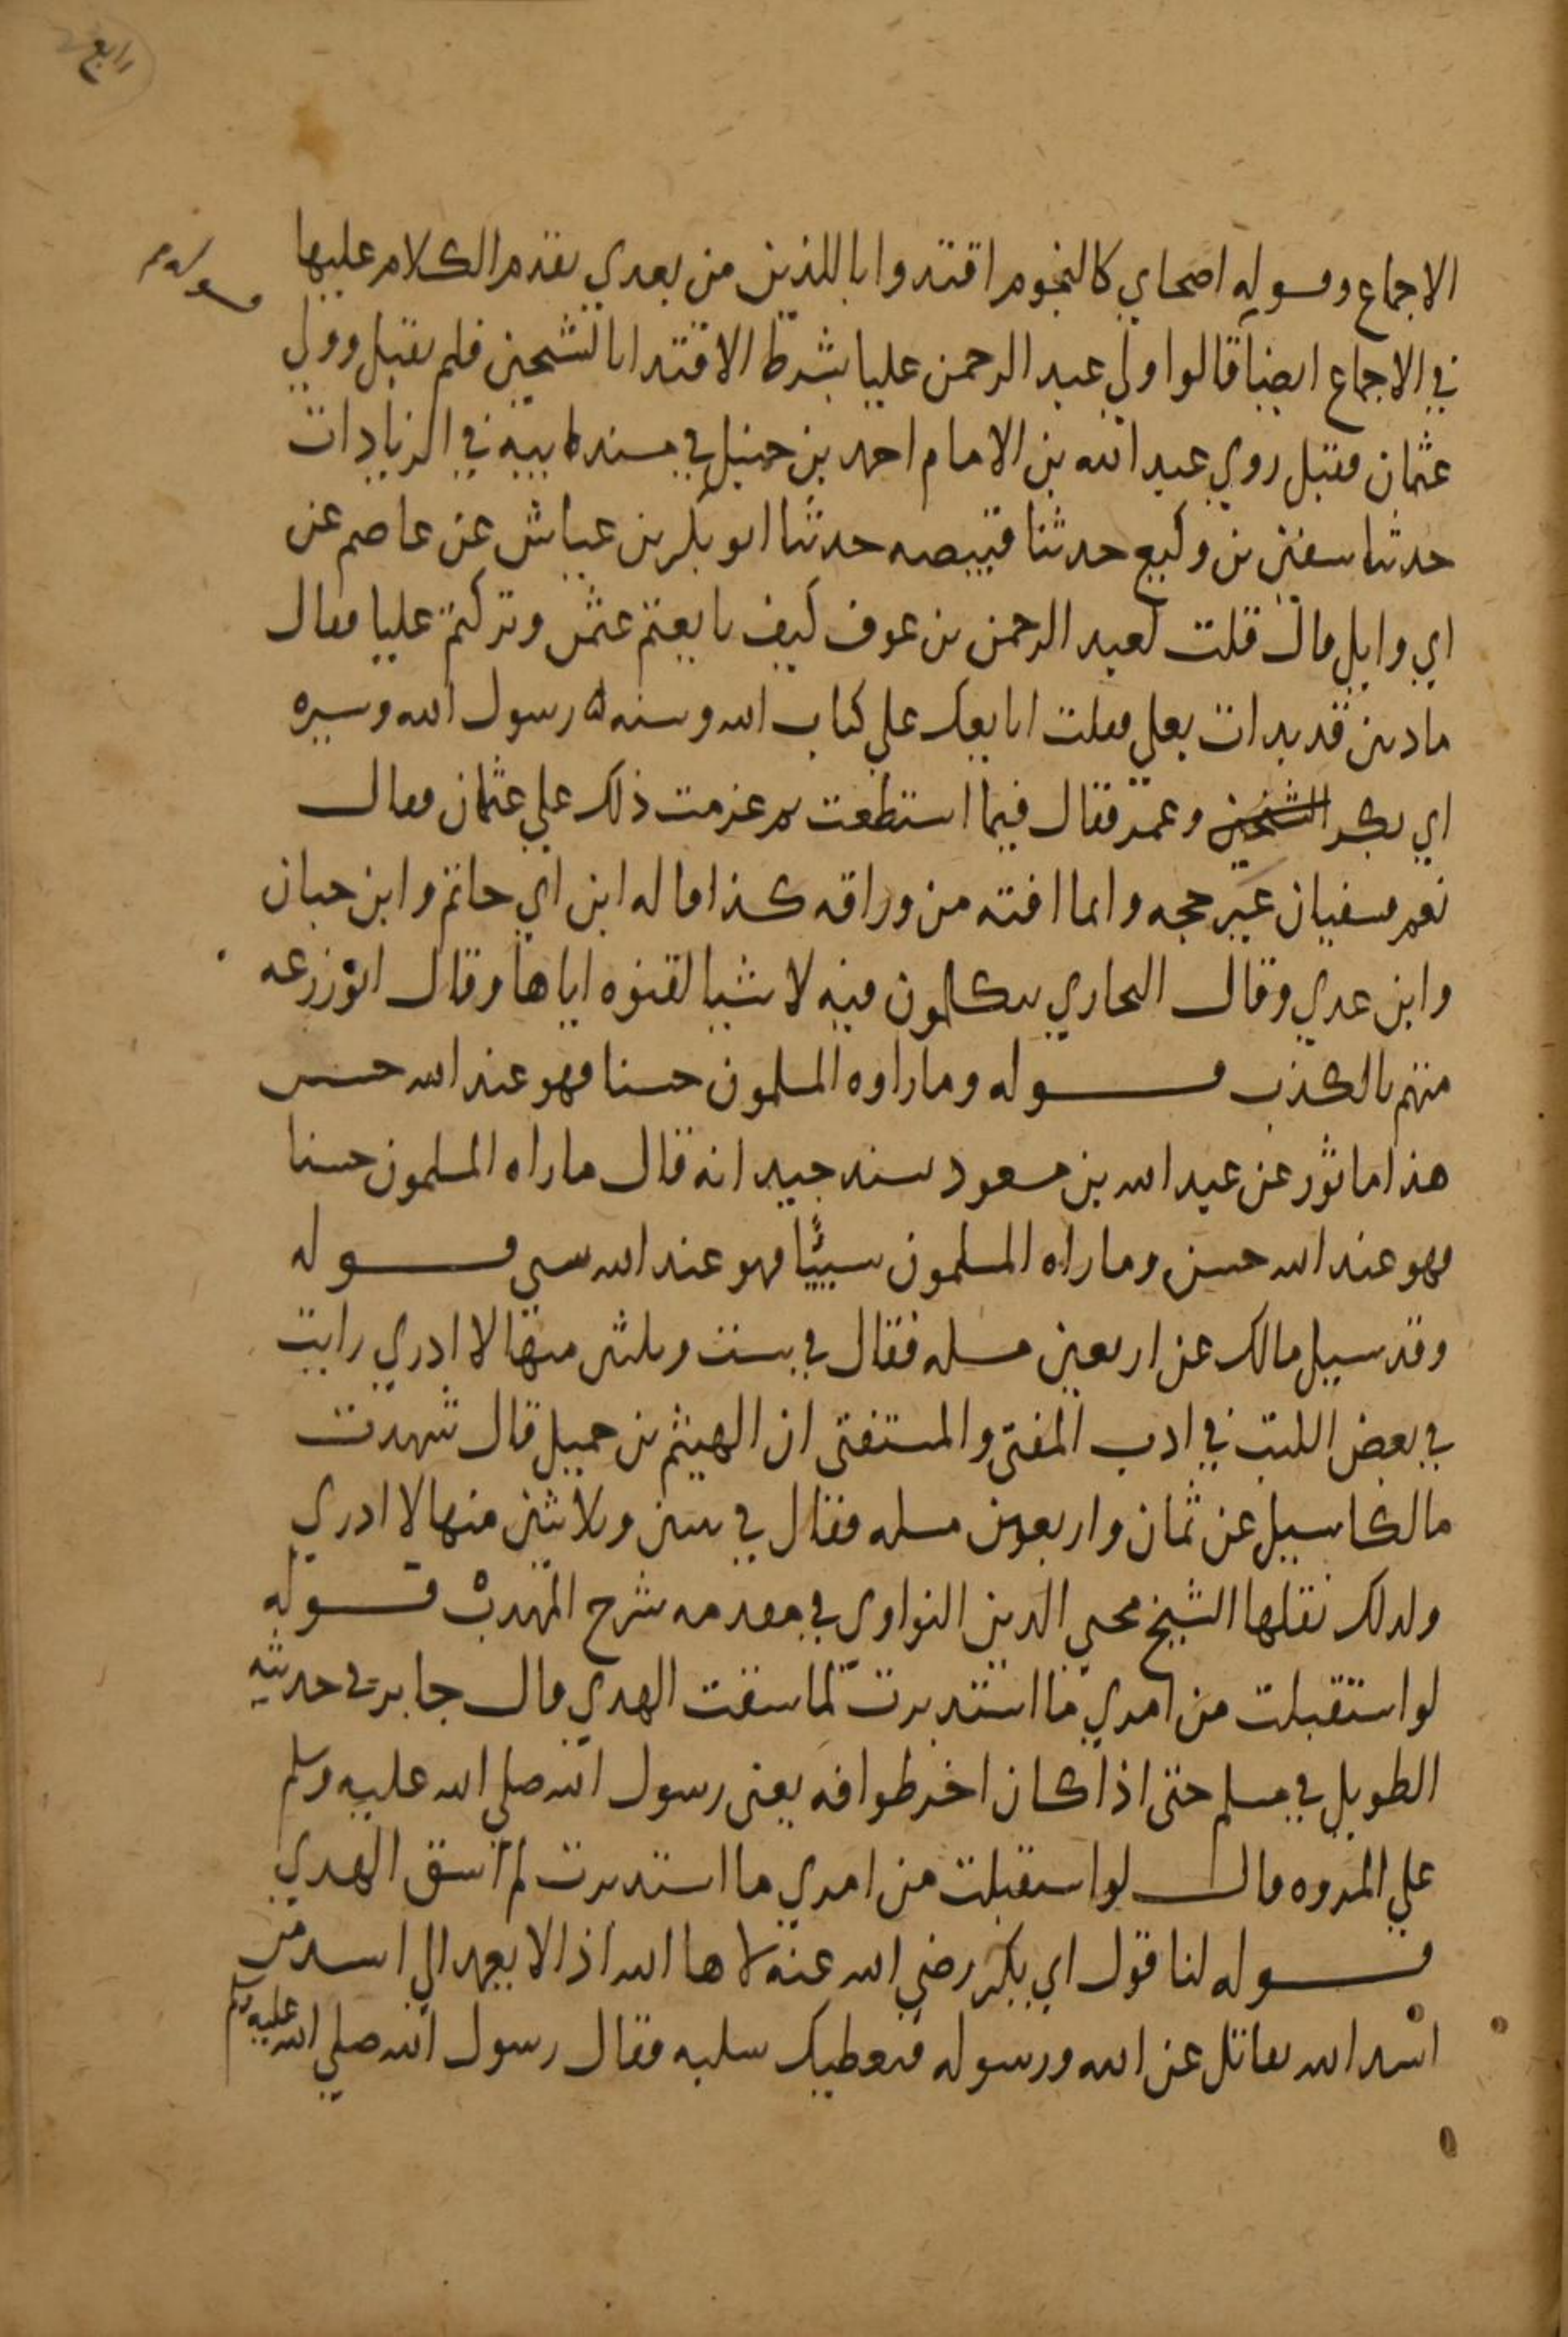 رابع
الاجماع وقوله اصحابي كالنجوم اقتدوا باللذين من بعدي تقدم الكلام عليها
قوله
في الاجماع ايضا قالوا ولي عبد الرحمن عليا بشرط الاقتدا بالشيخين فلم يقبل وولي
عثمان فقبل روي عبد الله بن الامام احمد بن حنبل في مسند ابيه في الزيادات
حدثنا سفين بن وكيع حدثنا قبيصه حدثنا ابو بكر بن عياش عن عاصم عن
ابي وايل قال قلت لعبد الرحمن بن عوف كيف بايعتم عثمن وتركتم عليا فقال
ما ذنبي قد بدات بعلي فقلت ابايعك علي كتاب الله وسنه رسول الله وسيره
ابي بكر الشيخين وعمر فقال فيما استطعت ثم عرضت ذلك علي عثمان فقال
نعم سفيان غير حجه وانما افته من وراقه كذا قاله ابن ابي حاتم وابن حبان
وابن عدي وقال البخاري يتكلمون فيه لاشيا لقنوه اياها وقال ابو زرعه
متهم بالكذب قوله وما راوه المسلمون حسنا فهو عند الله حسن
هذا ماثور عن عبد الله بن مسعود بسند جيد انه قال ما راه المسلمون حسنا
فهو عند الله حسن وما راه المسلمون سيئا فهو عند الله سي قوله
وقد سيل مالك عن اربعين مسله فقال في ست وثلثين منها لا ادري رايت
في بعض الكتب في ادب المفتي والمستفتي ان الهيثم بن جميل قال شهدت
مالكا سيل عن ثمان واربعين مسله فقال في ثنتين وثلاثين منها لا ادري
وكذلك نقلها الشيخ محيي الدين النواوي في مقدمه شرح المهذب قوله
لو استقبلت من امري ما استدبرت لما سقت الهدي قال جابر في حديثه
الطويل في مسلم حتى اذا كان اخر طوافه يعني رسول الله صلي الله عليه وسلم
علي المروه قال لو استقبلت من امري ما استدبرت لم اسق الهدي
قوله لنا قول ابي بكر رضي الله عنه لاها الله اذا لا يعمد الي اسد من
اسد الله يقاتل عن الله ورسوله فيعطيك سلبه فقال رسول الله صلي الله عليه وسلم